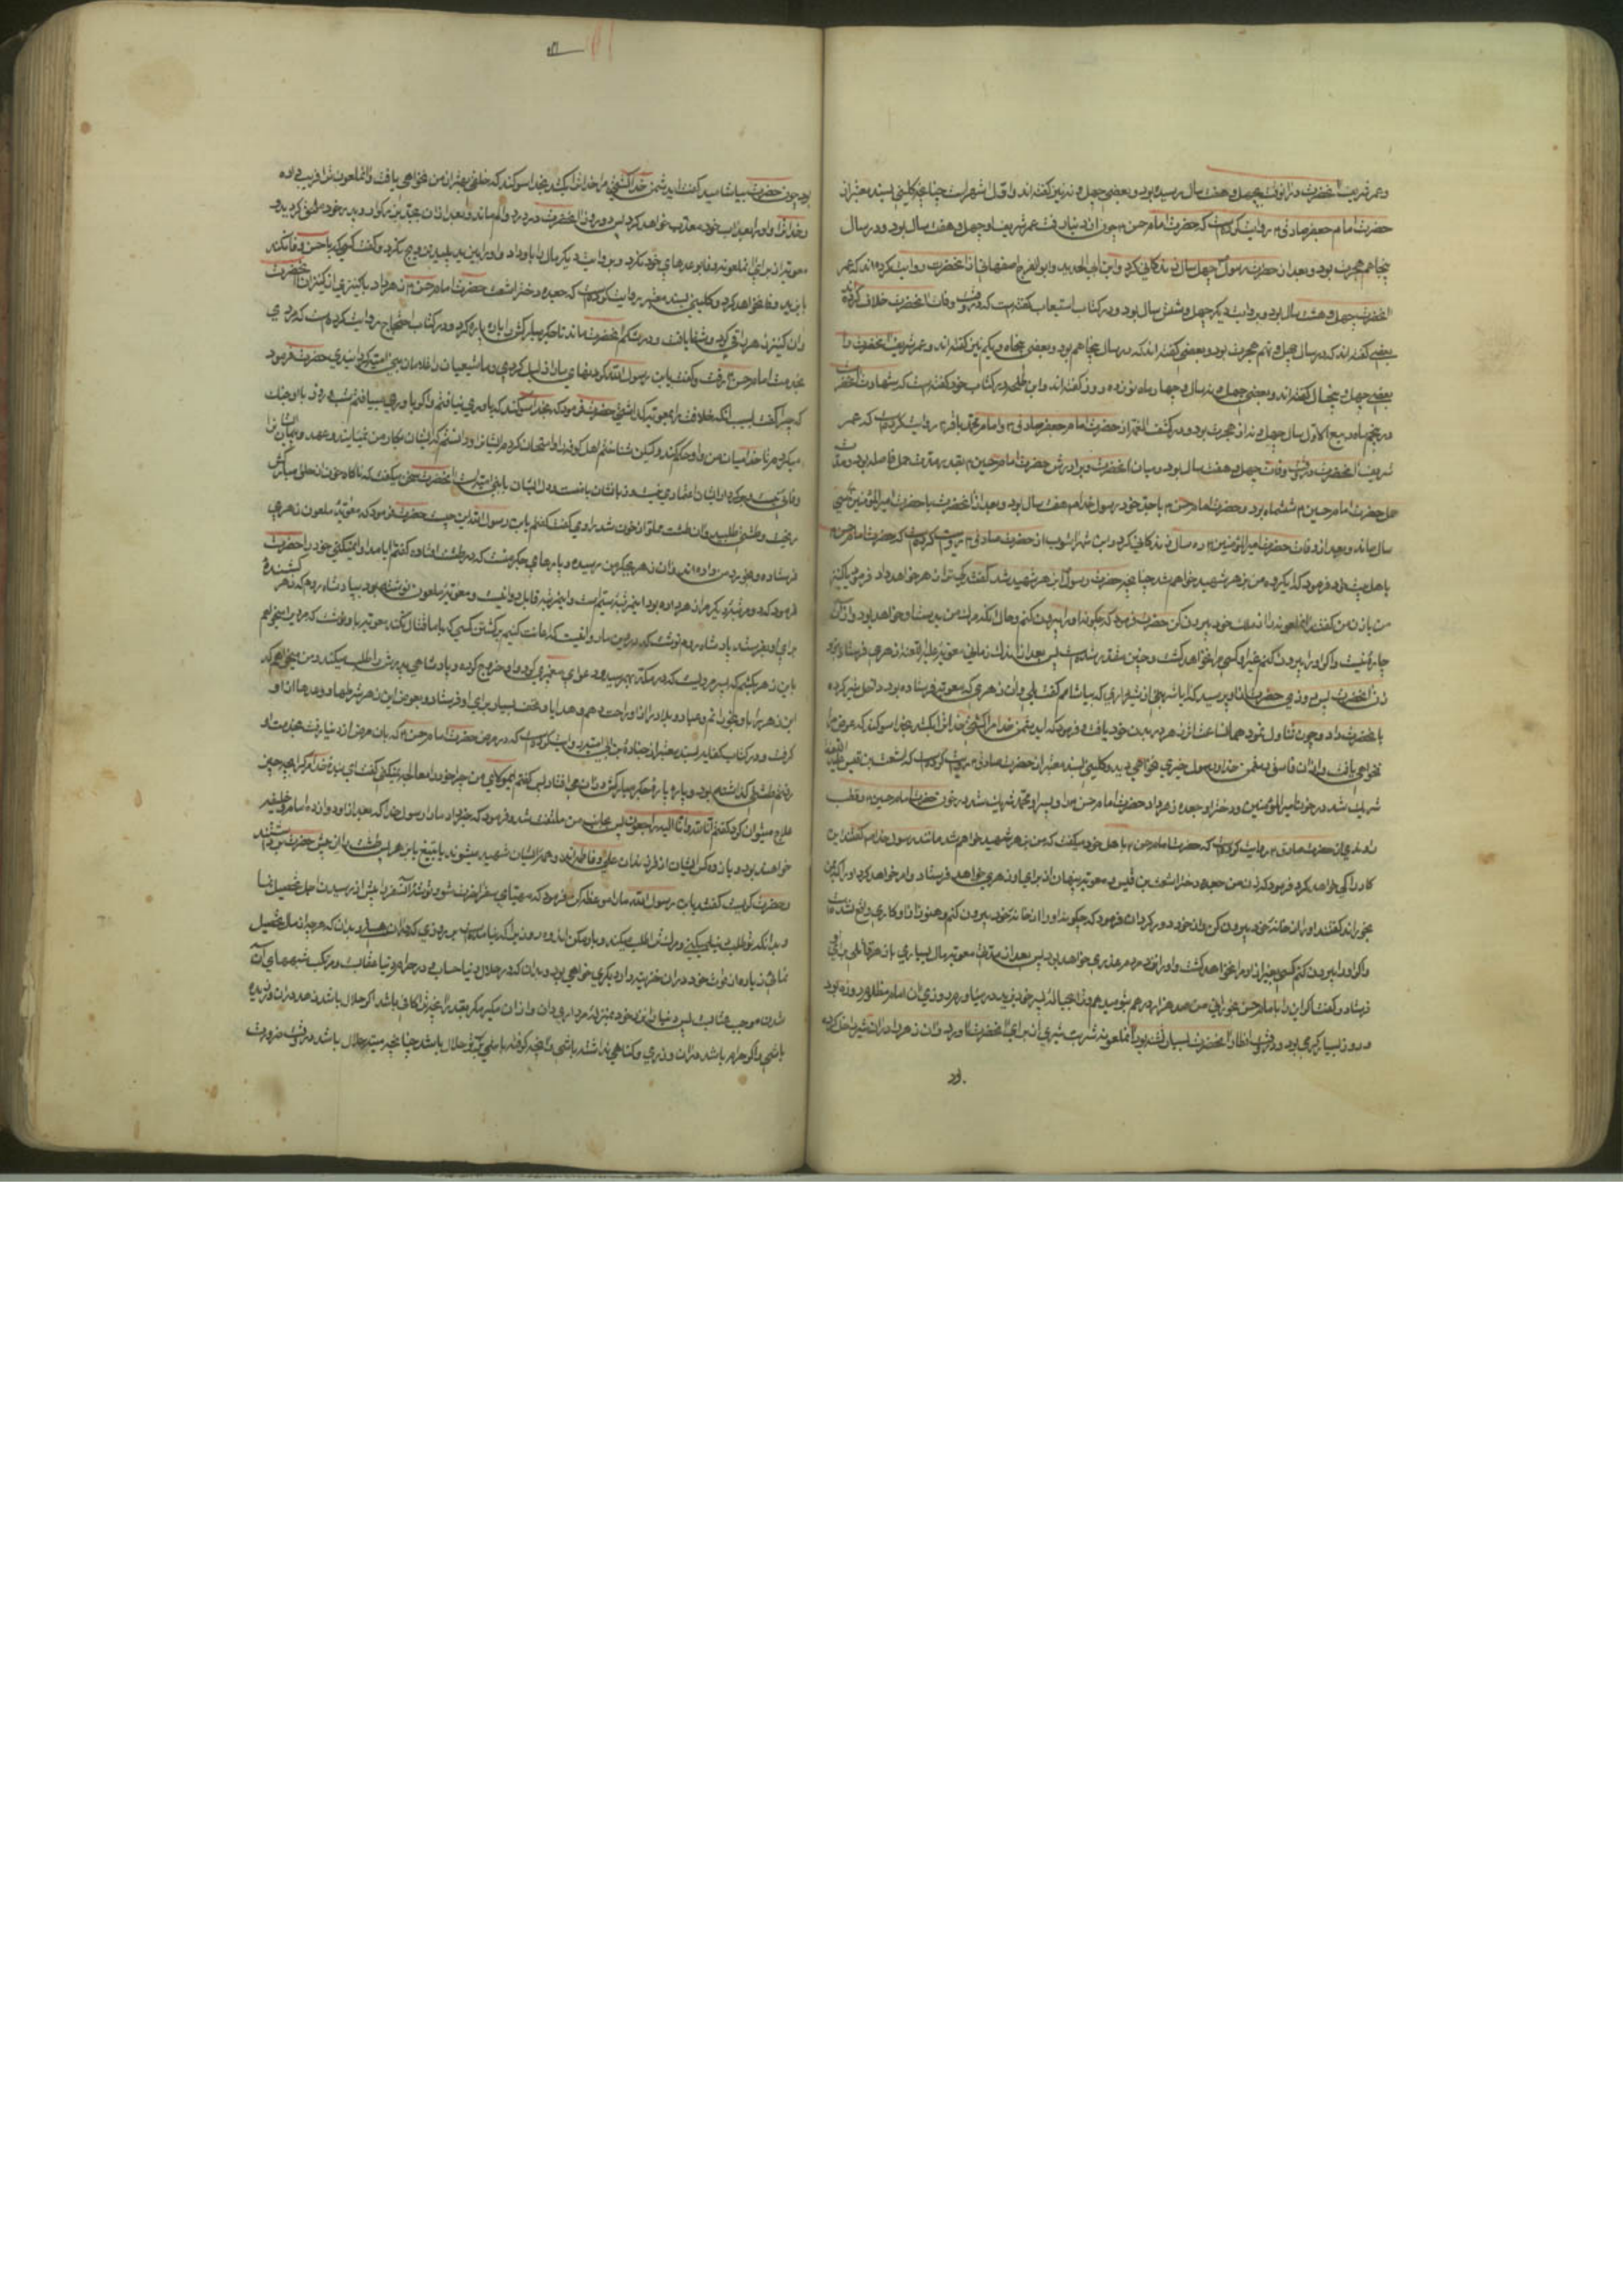 و عمر شریف آنحضرت در آنوقت بچهل و هفت سال رسیده بود و بعضی چهل و نه نیز گفته‌اند و اول اشهر است چنانچه کلینی بسند معتبر از
حضرت امام جعفر صادق ۴ روایت کرده است که حضرت امام حسن ۴ چون از دنیا رفت عمر شریف او چهل و هفت سال بود و در سال
پنجاهم هجرت بود و بعد از حضرت رسول چهل سال زندکانی کرد و ابن ابی الحدید و ابو الفرج اصفهانی از آنحضرت روایت کرده‌اند که عمر
آنحضرت چهل و هشت سال بود و بروایت دیکر چهل و شش سال بود و در کتاب استیعاب گفته است که در وقت وفات آنحضرت خلاف کرده‌اند
بعضی گفته‌اند که در سال چهل و نهم هجرت بود و بعضی گفته‌اند که در سال پنجاهم بود و بعضی پنجاه و یکم نیز گفته‌اند و عمر شریف آنحضرت را
بعضی چهل و پنجسال گفته‌اند و بعضی چهل و نه سال و چهار ماه و نوزده روز گفته‌اند و ابن طلحه در کتاب خود گفته است که شهادت آنحضرت
در پنجم ماه ربیع الاول سال چهل و نه از هجرت بود و در کشف الغمه از حضرت امام جعفر صادق ۴ و امام محمد باقر ۴ روایت کرده است که عمر
شریف آنحضرت در وقت وفات چهل و هفت سال بود و میان آنحضرت و برادرش حضرت امام حسین ۴ بقدر مدت حمل فاصله بود و مدت
حمل حضرت امام حسین ۴ ششماه بود و حضرت امام حسن ۴ با جد خود رسول خدا ۴ هفت سال بود و بعد از آنحضرت با حضرت امیر المؤمنین ۴ سی
سال ماند و بعد از وفات حضرت امیر المؤمنین ۴ ده سال زندکانی کرد و ابن شهر آشوب از حضرت صادق ۴ روایت کرده است که حضرت امام حسن ۴
باهل بیت خود فرمود که ای کروه من بزهر شهید خواهم شد چنانچه حضرت رسول بزهر شهید شد گفتند که بتو زهر خواهد داد فرمود که کنیز
من یا زن من گفتند آنملعونه را از ملک خود بیرون کن حضرت فرمود که چکونه او را بیرون کنم و حال آنکه مرگ من بدست او خواهد بود و از آن
چاره نیست و اکر او را بیرون کنم غیر او کسی مرا نخواهد کشت و چنین مقدر شده است پس بعد از اندک زمانی معویه علیه اللعنه زهری فرستاد نزد
زن آنحضرت پس روزی حضرت از او پرسید که آیا شربتی از شیر داری که بیاشامم گفت بلی و آن زهری که معویه فرستاده بود داخل شیر کرده
بآنحضرت داد و چون تناول نمود همان ساعت اثر زهر در بدن خود یافت و فرمود که ای دشمن خدا مرا کشتی خدا ترا بکشد بخدا سوکند که عوض مرا
نخواهی یافت و از آن فاسق دشمن خدا و رسول خیری نخواهی دید و کلینی بسند معتبر از حضرت صادق ۴ روایت کرده است که اشعث بن قیس علیه اللعنه
شریک شد در خون امیر المؤمنین و دختر او جعده زهر داد حضرت امام حسن ۴ را و پسر او محمد شریک شد در خون حضرت امام حسین ۴ و قطب
راوندی از حضرت صادق ۴ روایت کرده است که حضرت امام حسن ۴ باهل خود میگفت که من بزهر شهید خواهم شد مانند رسول خدا ۴ گفتند این
کار را کی خواهد کرد فرمود که زن من جعده دختر اشعث بن قیس معویه پنهان از برای او زهری خواهد فرستاد و امر خواهد کرد او را که بمن
بخوراند گفتند او را از خانه خود بیرون کن و از خود دور کردان فرمود که چکونه او را از خانه خود بیرون کنم و هنوز از او کاری واقع نشده است
و اکر او را بیرون کنم کسی بغیر از او مرا نخواهد کشت و او را نزد مردم عذری خواهد بود پس بعد از مدتی معویه مال بسیاری با زهر قاتلی برای او
فرستاد و گفت اکر این را بامام حسن بخورانی من صد هزار درهم بتو میدهم و ترا بحباله پسر خود یزید در میاورم روزی آن امام مظلوم روزه بود
و روز بسیار کرمی بود و در وقت افطار آنحضرت بسیار تشنه بود آنملعونه شربت شیری از برای آنحضرت آورد و آن زهر را در آن شیر داخل کرده
بود
بود چون حضرت بیاشامید گفت ای دشمن خدا کشتی مرا خدا ترا بکشد بخدا سوکند که خلفی بهتر از من نخواهی یافت و آنملعون ترا فریب داده
و خدا ترا و او را بعذاب خود معذب خواهد کرد پس دو روز آنحضرت در درد و الم ماند و بعد از آن بجد بزرکوار و پدر خود ملحق کردید و
معویه از برای آنملعونه وفا بوعدهای خود نکرد و بروایت دیکر مال را باو داد و او را بیزید پلید تزویج نکرد و گفت کسی که با حسن وفا نکند
با یزید وفا نخواهد کرد و کلینی بسند معتبر روایت کرده است که جعده دختر اشعث حضرت امام حسن ۴ را زهر داد با کنیزی از کنیزان آنحضرت
و آن کنیز زهر را قی کرد و شفا یافت و در شکم آنحضرت ماند تا جکر مبارکش را پاره پاره کرد و در کتاب احتجاج روایت کرده است که مردی
بخدمت امام حسن ۴ رفت و گفت یابن رسول الله کردنهای ما را ذلیل کردی و ما شیعیان را غلامان بنی امیه کردانیدی حضرت فرمود
که چرا گفت بسبب آنکه خلافت را بمعویه گذاشتی حضرت فرمود که بخدا سوکند که یاوری نیافتم و اکر یاوری مییافتم شب و روز با او جنک
میکردم تا خدا میان من و او حکم کند و لیکن شناختم اهل کوفه را و امتحان کردم ایشان را و دانستم که ایشان بکار من نمیایند و عهد و پیمان ایشان را
وفائی نیست و بر کردار ایشان اعتمادی نیست و زبانشان با منست و دل ایشان با بنی امیه است آنحضرت سخن میگفت که ناکاه خون از حلق مبارکش
ریخت و طشتی طلبید و آن طشت مملو از خون شد راوی گفت گفتم یابن رسول الله این چیست حضرت فرمود که معویه ملعون زهری
فرستاده و بخورد من داده‌اند و آن زهر بجکر من رسیده و پارهای جکر منست که در طشت افتاده گفتم آیا مداوا نمیکنی خود را حضرت
فرمود که دو مرتبه دیکر مرا زهر داده بود این مرتبه سیم است و این مرتبه قابل دوا نیست و معویه ملعون نوشته بود بپادشاه روم که زهر کشنده
برای او بفرستد پادشاه روم نوشت که در دین ما روا نیست که اعانت کنیم بر کشتن کسی که با ما قتال نکند معویه باو نوشت که مردی را میخواهم
باین زهر بکشم که پسر مردیست که در مکه بهم رسیده و دعوای پیغمبری کرد و او خروج کرده و پادشاهی پدرش را طلب میکند و من میخواهم که
این زهر را باو بخورانم و عباد و بلاد را از او راحت دهم و هدایا و تحف بسیار برای او فرستاد و بعوض این زهر شرطها و عهدها از او
گرفت و در کتاب کفایه بسند معتبر از جناده بن ابی امیه روایت کرده است که در مرض حضرت امام حسن ۴ که بآن مرض از دنیا رفت بخدمت او
رفتم طشتی گذاشته بود و پاره پاره جکر مبارکش در آن میافتاد پس گفتم ای مولای من چرا خود را معالجه نمیکنی گفت ای بنده خدا مرک را بچه چیز
علاج میتوان کرد گفتم انا لله و انا الیه راجعون پس بجانب من ملتفت شد و فرمود که خبر داد ما را رسول خدا که بعد از او دوازده امام و خلیفه
خواهند بود و یازده کس ایشان از فرزندان علی و فاطمه‌اند و همه ایشان شهید میشوند یا بتیغ یا بزهر پس طشت را از پیش حضرت برداشتند
و حضرت کریست گفتم یابن رسول الله ما را موعظه کن فرمود که مهیای سفر آخرت شو و توشه آن سفر را پیش از رسیدن اجل تحصیل نما
و بدانکه تو طلب دنیا میکنی و مرک ترا طلب میکند و بار مکن اندوه روزی را که نیامده است بر روزی که در آن هستی و بدان که هر چه از مال تحصیل
نمائی زیاده از قوت خود در آن خزینه‌دار دیکری خواهی بود و بدان که در حلال دنیا حسابست و در حرام دنیا عقاب و مرتکب شبههای آن
شدن موجب عتابست پس دنیا را نزد خود بمنزله مرداری دان و از آن مکیر مکر بقدر آنچه ترا کافی باشد اکر حلال باشد زهد در آن ورزیده
باشی و اکر حرام باشد در آن وزری و کناهی نداشته باشی و آنچه کرفته باشی بر تو حلال باشد چنانچه میته حلال میباشد در وقت ضرورت